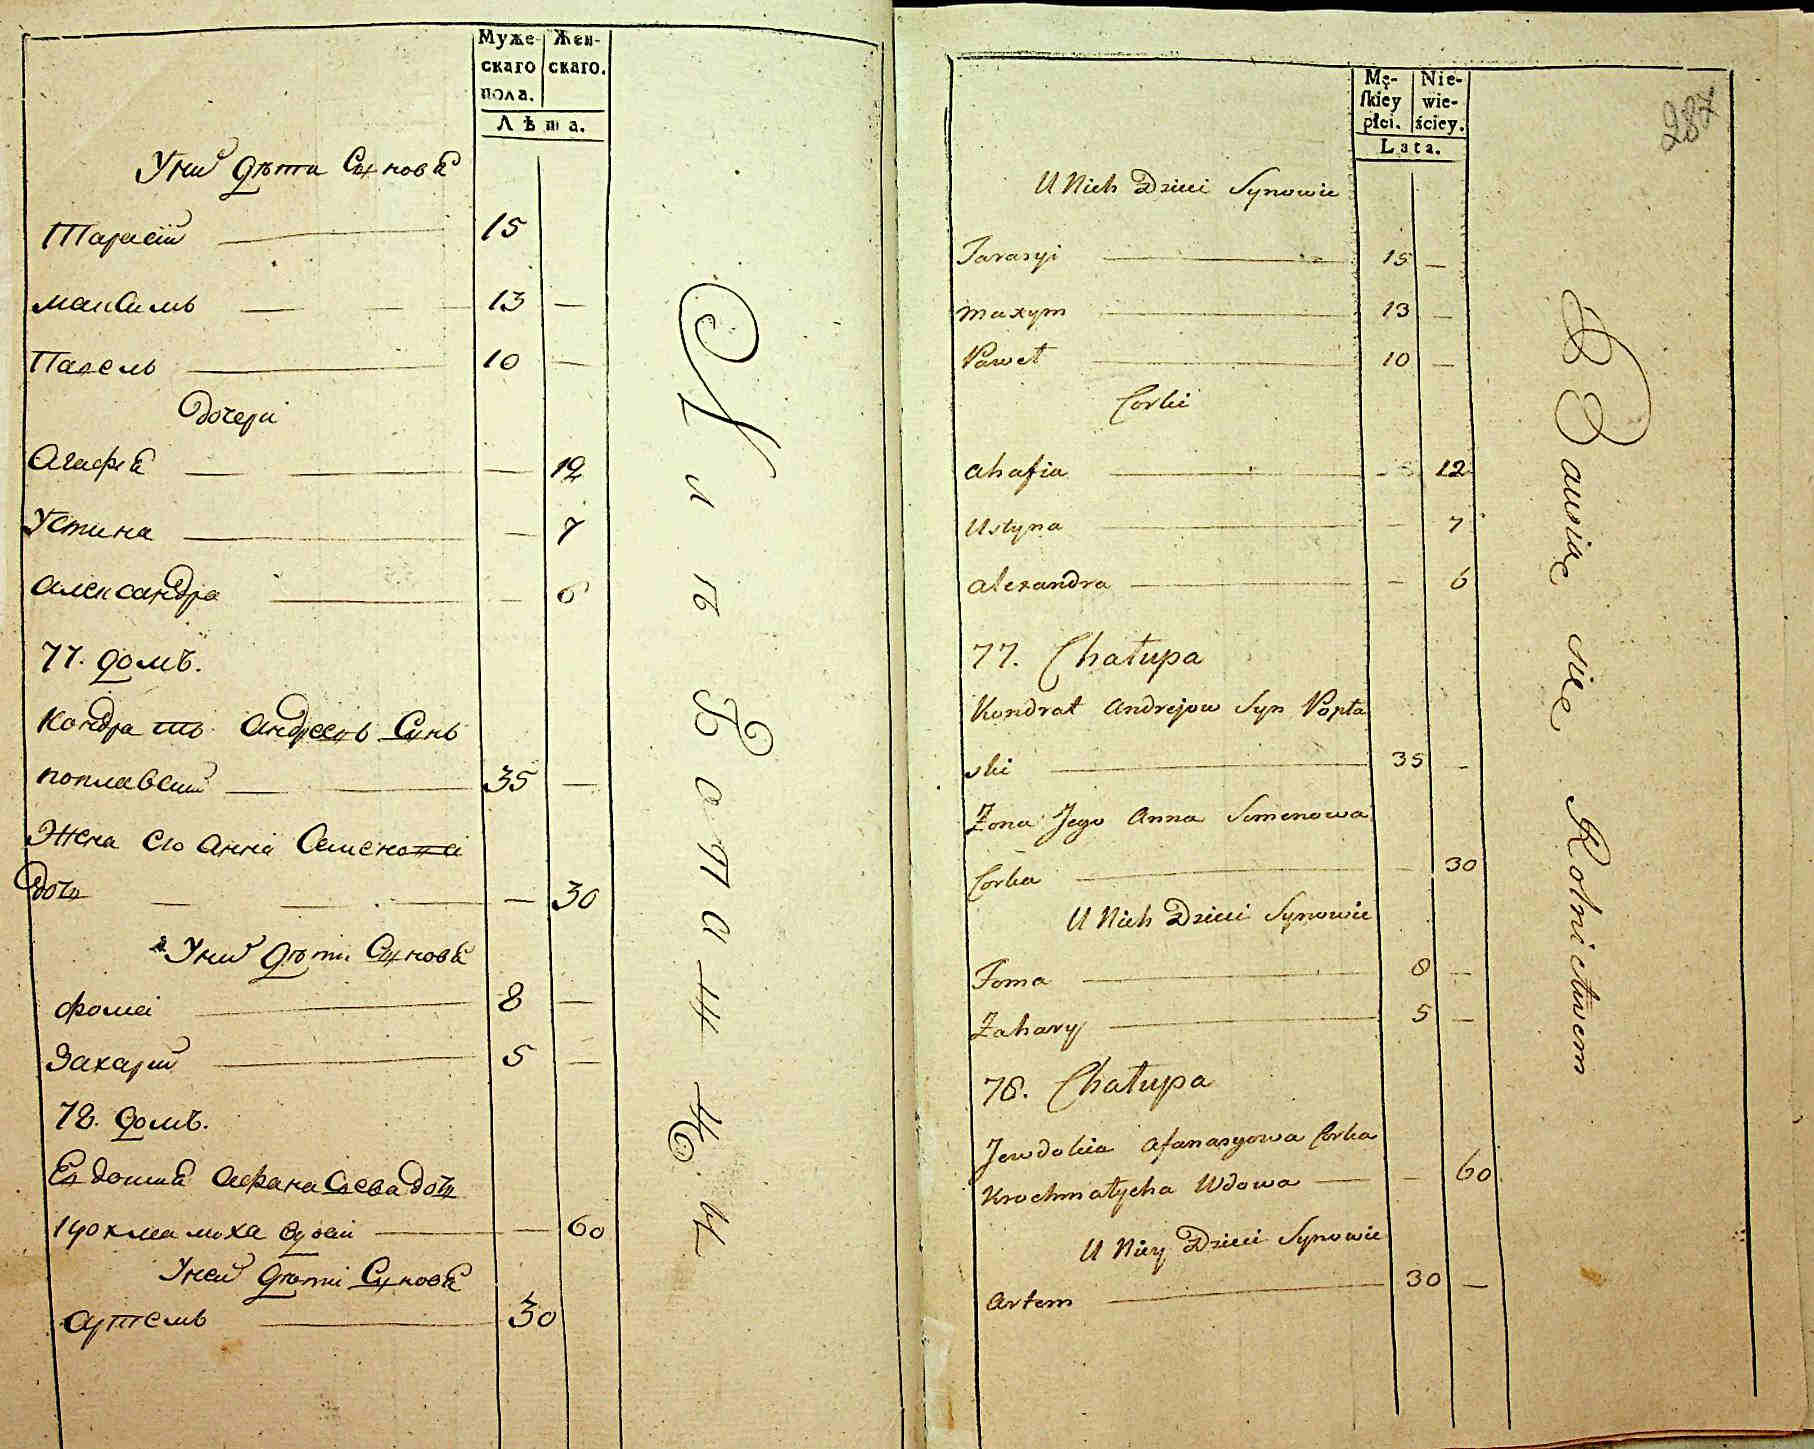 Муже-
скаго
пола.
Жен-
скаго.
Лѣта.
У них дѣти Сыновя
Тарасій 15
максимъ 13 —
Павель 10 —
дочери
Агафія — 12
Устина — 7
александра — 6
77. домъ.
Кондратъ андреевъ Сынъ
поплавски 35 —
Жена его анна Семенова
дочь — 30
У них дѣти Сыновя
фома 8 —
Захарий 5 —
78. домъ.
Евдокия афанасьева дочь
60
У ней дѣти Сыновя
артемъ 30
287
Mę-
skiey
płci.
Nie-
wie-
ściey.
Lata.
U Nich Dzieci Synowie
Tarasyi 15 —
maxym 13 —
Paweł 10 —
Corki
ahafia 12
Ustyna — 7
alexandra — 6
77. Chałupa
Kondrat andrejow Syn Popła
ski 35 —
Żona Jego anna Semenowa
Corka — 30
U Nich Dzieci Synowie
Foma 8 —
Zahary 5 —
78. Chałupa
Jewdokia afanasyowa Corka
Krochmalycha Wdowa — — 60
U Niey Dzieci Synowie
artem 30 —
Bawiąc się Rolnictwem